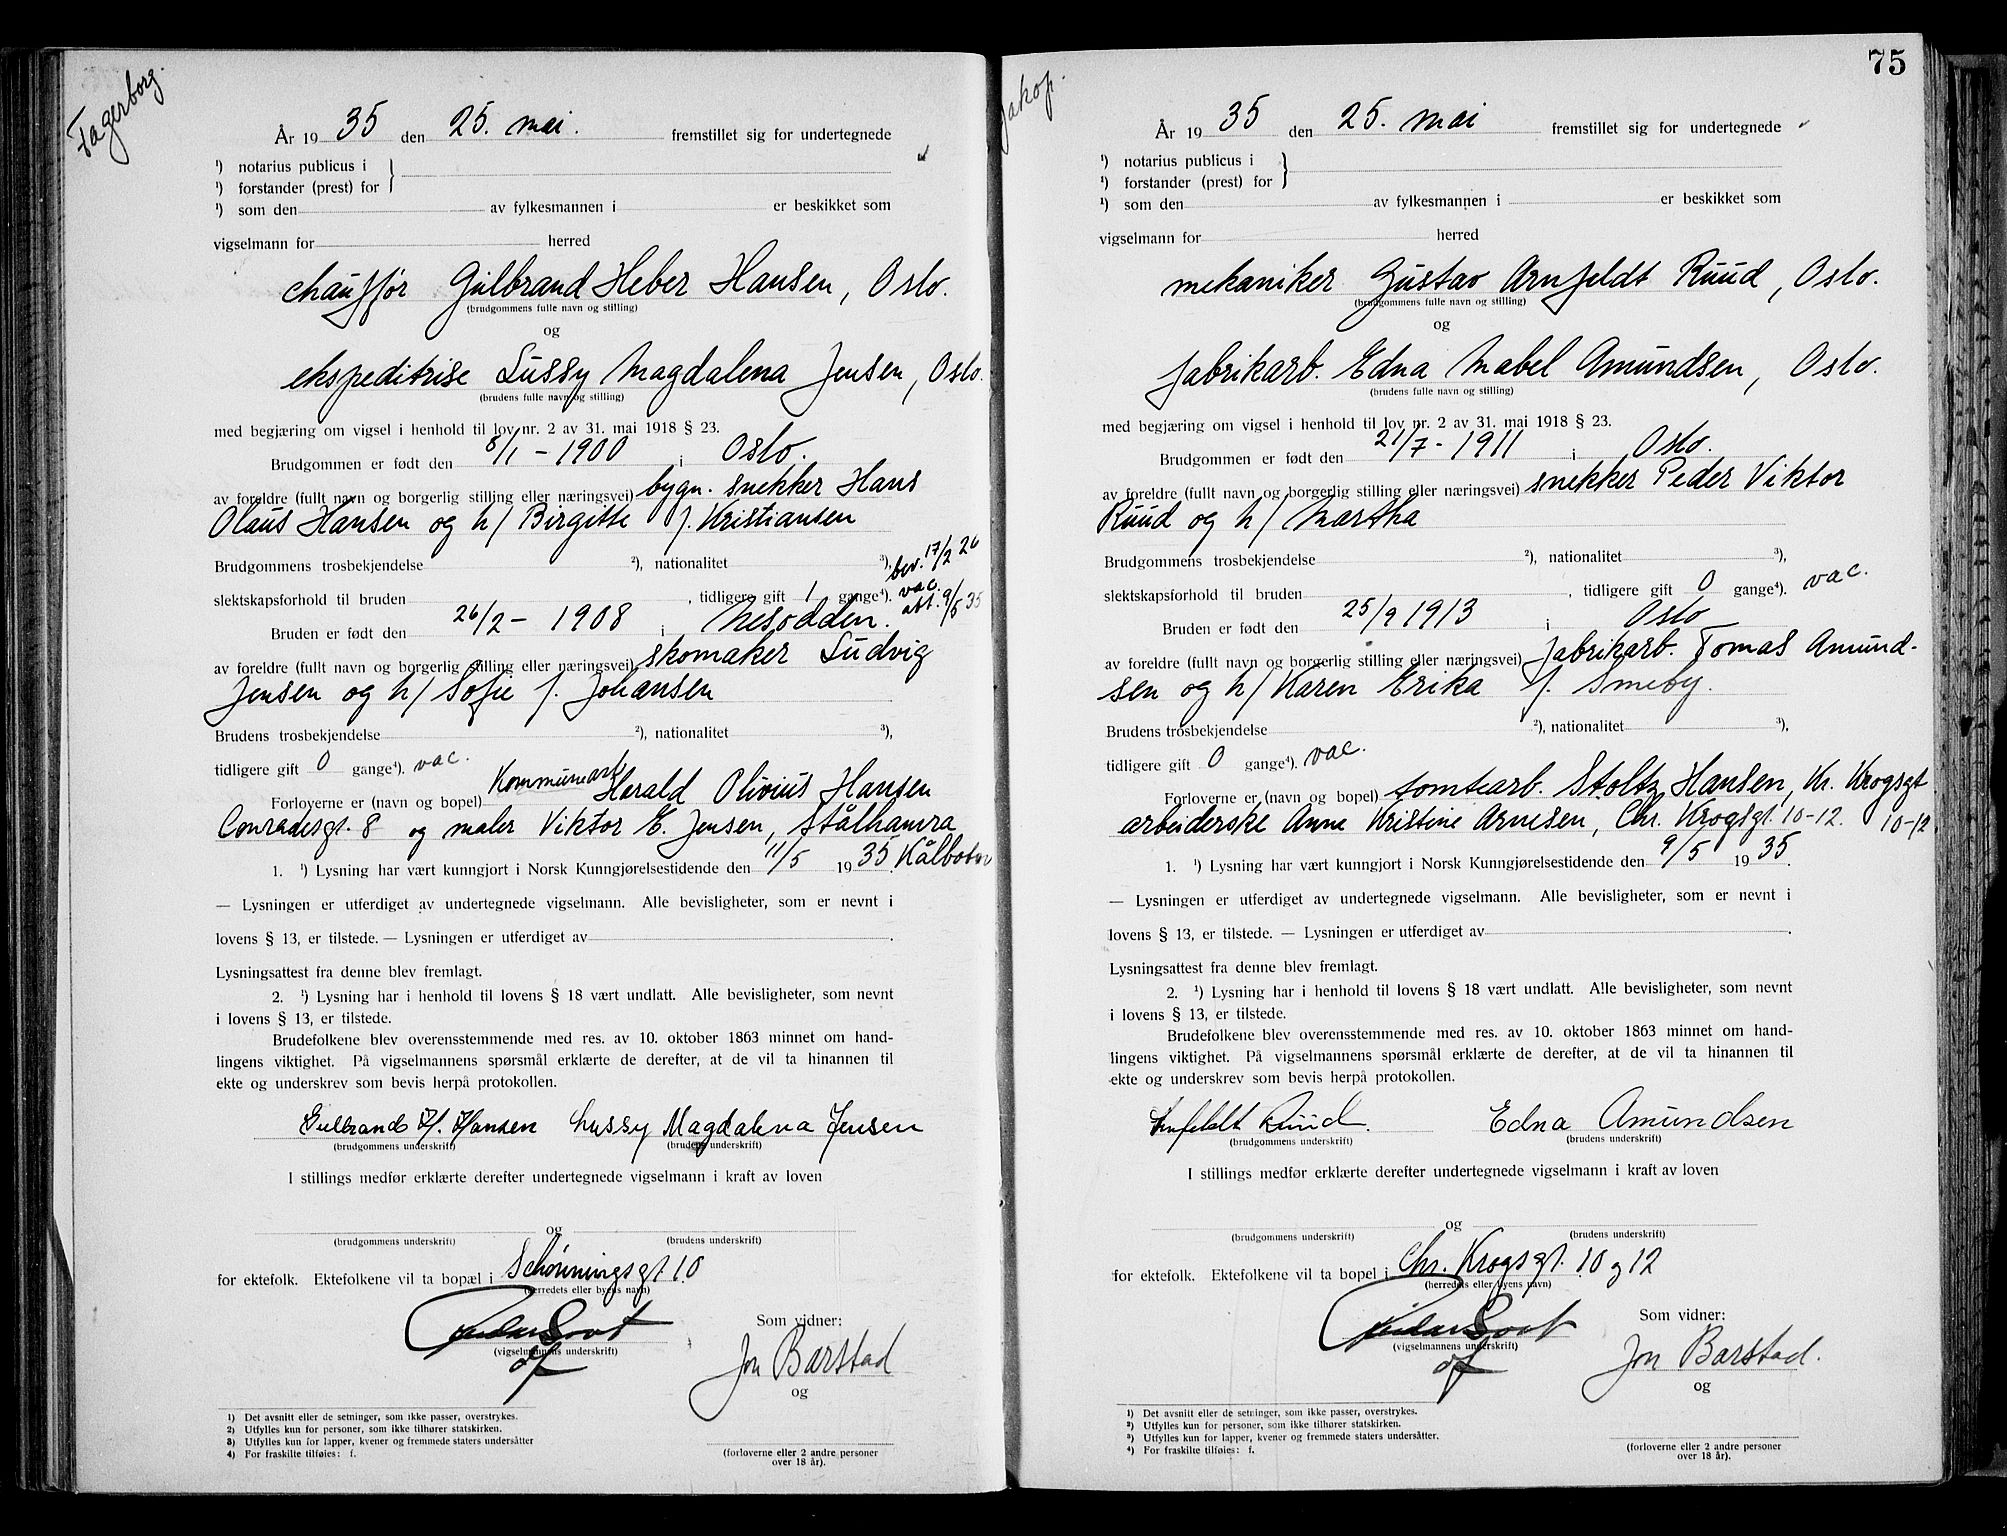 Fagerborg.
År 1935 den 25. mai. fremstillet sig for undertegnede
¹) notarius publicus i
¹) forstander (prest) for
¹) som den av fylkesmannen i er beskikket som
vigselmann for herred
chauffør Gulbrand Heber Hansen, Oslo.
(brudgommens fulle navn og stilling)
og
ekspeditrise Lussy Magdalena Jensen, Oslo.
(brudens fulle navn og stilling)
med begjæring om vigsel i henhold til lov nr. 2 av 31. mai 1918 § 23.
Brudgommen er født den 8/1 - 1900 i Oslo.
av foreldre (fullt navn og borgerlig stilling eller næringsvei) bygn. snekker Hans
Olaus Hansen og h/ Birgitte f. Kristiansen
Brudgommens trosbekjendelse ²), nationalitet ³), bev. 17/2 26
slektskapsforhold til bruden , tidligere gift 1 gange⁴). vac. att. 9/5 35
Bruden er født den 26/2 - 1908 i Nesodden.
av foreldre (fullt navn og borgerlig stilling eller næringsvei) skomaker Ludvig
Jensen og h/ Sofie f. Johansen
Brudens trosbekjendelse ²), nationalitet ³),
tidligere gift 0 gange⁴). vac.
Forloverne er (navn og bopel) Kommunearb. Harald Olivius Hansen
Conradisgt. 8 og maler Viktor E. Jensen, Stålhamra
1. ¹) Lysning har vært kunngjort i Norsk Kunngjørelsestidende den 11/5 1935. Kålbotn
— Lysningen er utferdiget av undertegnede vigselmann. Alle bevisligheter, som er nevnt i
lovens § 13, er tilstede. — Lysningen er utferdiget av .
Lysningsattest fra denne blev fremlagt.
2. ¹) Lysning har i henhold til lovens § 18 vært undlatt. Alle bevisligheter, som nevnt
i lovens § 13, er tilstede.
Brudefolkene blev overensstemmende med res. av 10. oktober 1863 minnet om hand-
lingens viktighet. På vigselmannens spørsmål erklærte de derefter, at de vil ta hinannen til
ekte og underskrev som bevis herpå protokollen.
Gulbrand H. Hansen Lussy Magdalena Jensen
(brudgommens underskrift) (brudens underskrift)
I stillings medfør erklærte derefter undertegnede vigselmann i kraft av loven
og
(brudgommens underskrift) (brudens underskrift)
for ektefolk. Ektefolkene vil ta bopæl i Schønningsgt. 10
(herredets eller byens navn)
Som vidner:
(vigselmannens underskrift)
Jon Barstad
og
1) Det avsnitt eller de setninger, som ikke passer, overstrykes.
2) Utfylles kun for personer, som ikke tilhører statskirken.
3) Utfylles kun for lapper, kvener og fremmede staters undersåtter
4) For fraskilte tilføies: f.
(forloverne eller 2 andre personer
over 18 år).
75
Jakop.
År 1935 den 25. mai fremstillet sig for undertegnede
¹) notarius publicus i
¹) forstander (prest) for
¹) som den av fylkesmannen i er beskikket som
vigselmann for herred
mekaniker Gustav Arnfeldt Ruud, Oslo.
(brudgommens fulle navn og stilling)
og
fabrikarb. Edna Mabel Amundsen, Oslo.
(brudens fulle navn og stilling)
med begjæring om vigsel i henhold til lov nr. 2 av 31. mai 1918 § 23.
Brudgommen er født den 21/7 - 1911 i Oslo.
av foreldre (fullt navn og borgerlig stilling eller næringsvei) snekker Peder Viktor
Ruud og h/ Martha
Brudgommens trosbekjendelse ²), nationalitet ³),
slektskapsforhold til bruden , tidligere gift 0 gange⁴). vac.
Bruden er født den 25/9 1913 i Oslo
av foreldre (fullt navn og borgerlig stilling eller næringsvei) fabrikarb. Tomas Amund-
sen og h/ Karen Erika f. Smeby.
Brudens trosbekjendelse ²), nationalitet ³),
tidligere gift 0 gange⁴). vac.
Forloverne er (navn og bopel) tomtearb. Stoltz Hansen, Kr. Krogsgt.
arbeiderske Anne Kristine Arnesen, Chr. Krogsgt. 10-12. 10-12.
1. ¹) Lysning har vært kunngjort i Norsk Kunngjørelsestidende den 9/5 1935.
— Lysningen er utferdiget av undertegnede vigselmann. Alle bevisligheter, som er nevnt i
lovens § 13, er tilstede. — Lysningen er utferdiget av .
Lysningsattest fra denne blev fremlagt.
2. ¹) Lysning har i henhold til lovens § 18 vært undlatt. Alle bevisligheter, som nevnt
i lovens § 13, er tilstede.
Brudefolkene blev overensstemmende med res. av 10. oktober 1863 minnet om hand-
lingens viktighet. På vigselmannens spørsmål erklærte de derefter, at de vil ta hinannen til
ekte og underskrev som bevis herpå protokollen.
Arnfeldt Ruud. Edna Amundsen
(brudgommens underskrift) (brudens underskrift)
I stillings medfør erklærte derefter undertegnede vigselmann i kraft av loven
og
(brudgommens underskrift) (brudens underskrift)
for ektefolk. Ektefolkene vil ta bopel i Chr. Krogsgt. 10 og 12
(herredets eller byens navn)
Som vidner:
(vigselmannens underskrift)
Jon Barstad.
og
1) Det avsnitt eller de setninger, som ikke passer, overstrykes.
2) Utfylles kun for personer, som ikke tilhører statskirken.
3) Utfylles kun for lapper, kvener og fremmede staters undersåtter.
4) For fraskilte tilføies: f.
(forloverne eller 2 andre personer
over 18 år).